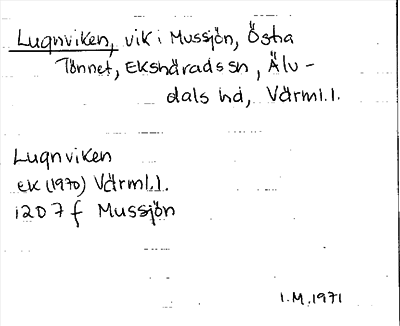 Lugnviken, vik i Mussjön, Östra
Tönnet, Ekshärads sn, Älv-
dals hd, Värml. l.
Lugnviken
ek (1970) Värml. l.
12D 7f Mussjön
I.M. 1971